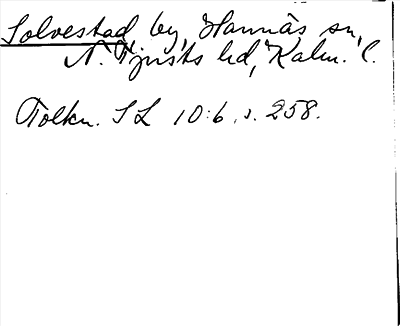 Solvestad by, Hannäs sn,
N. Tjusts hd, Kalm. l.
Tolkn. SL 10:6, s. 258.